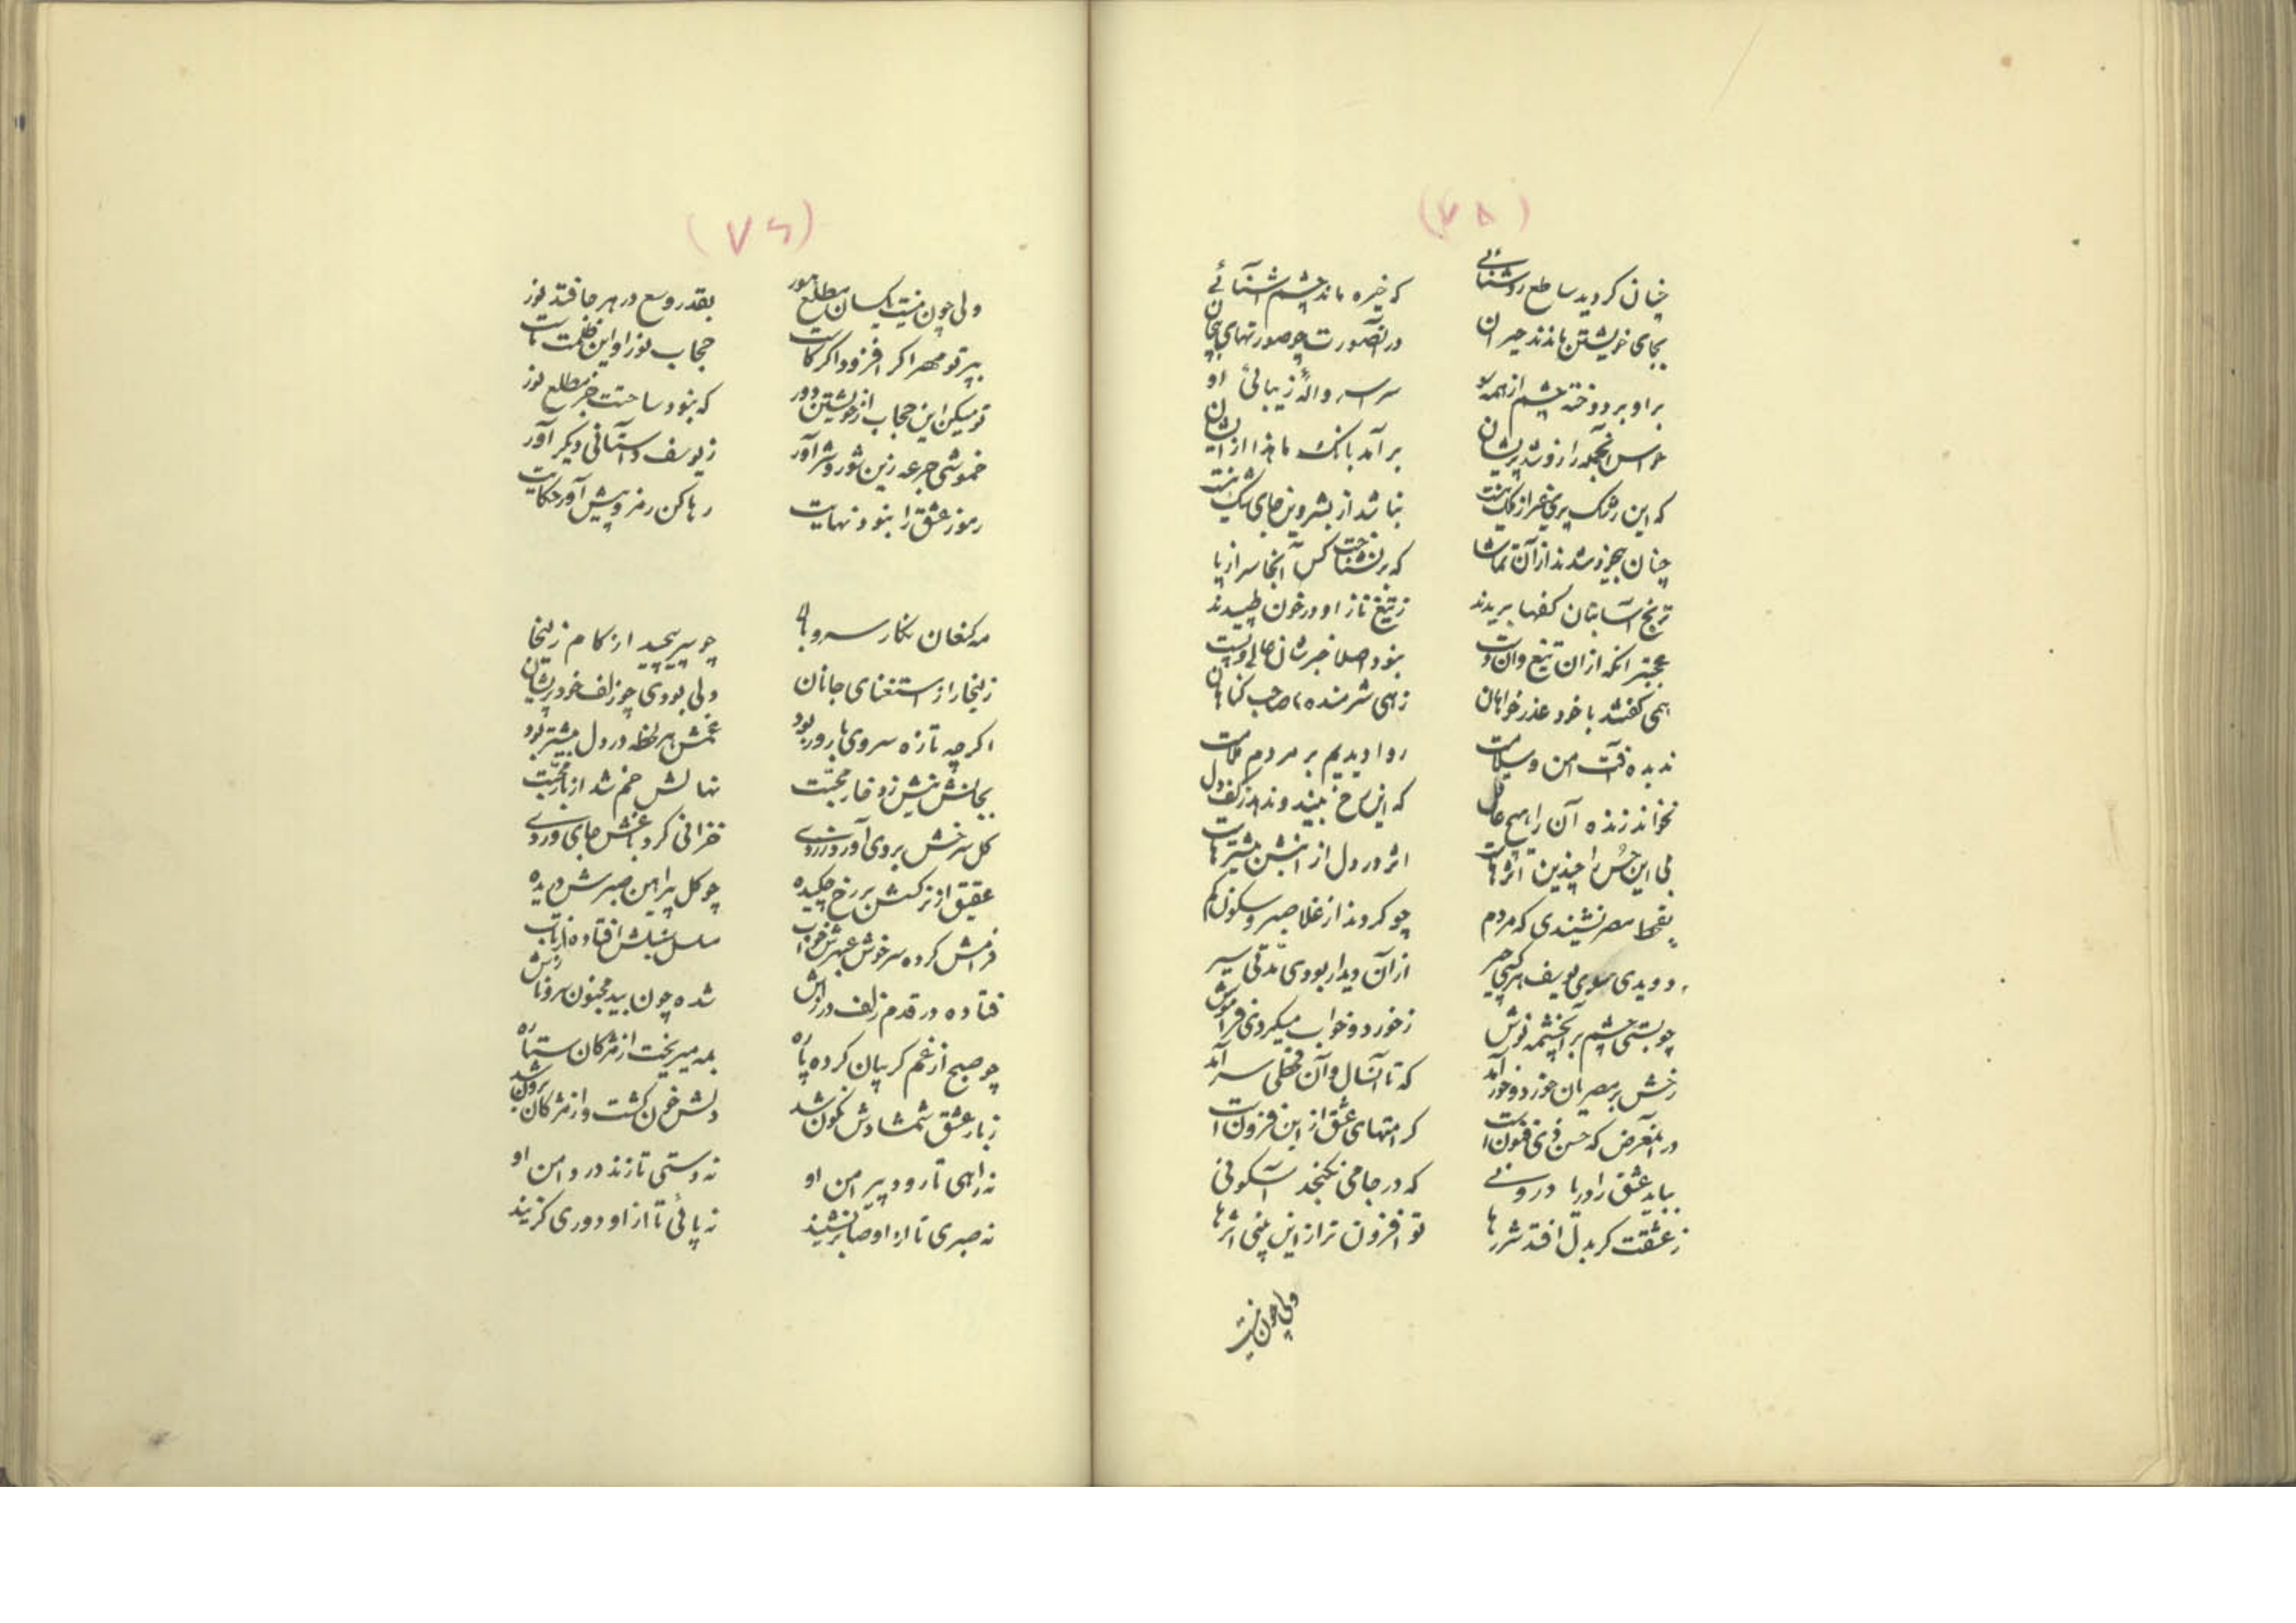 (۷۸)
چنان کردید ساطع روشنائی که خیره ماند چشم آشنائی
بجای خویشتن ماندند حیران در آنصورت چو صورتهای بیجان
بر او بر دوخته چشم از همه سو سراسر واله زیبائی او
حواس آنجمع را زو شد پریشان برآمد بانک ماهذا از ایشان
که این رشک پری غیر از ملک نیست نباشد از بشر وین جای شک نیست
چنان بیخود شدند از آن تماشا که نشناخت کس آنجا سر از پا
ترنج آسا بتان کفها بریدند ز تیغ ناز او در خون طپیدند
عجبتر انکه از ان تیغ وان دست نبود اصلا خبرشان حالی و پست
همی کفتند با خود عذر خواهان زهی شرمنده صاحب کناهان
ندیده آفت امن و سلامت روا دیدیم بر مردم ملامت
نخواند زنده آن را هیچ عاقل که این رخ بیند و ندهد ز کف دل
بلی این حسن را چندین اثرهاست اثر در دل از اینش بیشترهاست
بقحط مصر نشنیدی که مردم چو کردند از غلا صبر و سکون کم
دویدی سوی یوسف هر کجی چر از آن دیدار بودی مدتی سیر
چو بستی چشم بر آنچشمه نوش ز خورد و خواب میکردی فراموش
رخش بر مصریان خوردو خور آمد که تا آنسال و آن قحطی سر آمد
در آنمعرض که حسن ذی فنون است کرامتهای عشق از این فزون است
بباید عشق را دریا درونی که در جامی نکنجد آسکونی
ز عشقت کر بدل افتد شررها تو افزون تر از این بینی اثرها
ولی چون نیست
(۷۹)
ولی چون نیست یکسان مطلع نور بقدر وسع در هر جا فتد نور
بپرتو مهر اکر افزود اکر کاست حجاب نور او این ظلمت ماست
تو میکن این حجاب از خویشتن دور که نبود ساحتت جز مطلع نور
خموشی جرعه زین شور و شر آور ز یوسف داستانی دیکر آور
رموز عشق را نبود نهایت رها کن رمز و پیش آور حکایت
مه کنعان نکار سرو بالا چو سر پیچید از کام زلیخا
زلیخا را ز استغنای جانان ولی بودی چو زلف خود پریشان
اکرچه تازه سروی بارور بود غمش هر لحظه در دل بیشتر بود
بجانش نیش زد خار محبت نهالش خم شد از بار محبت
کل سرخش بروی آورد زردی خزانی کرد باغش جای وردی
عقیق از نرکسش بر رخ چکیده چو کل پیراهن صبرش دریده
فرامش کرده سرخوش عبهرش خواب مسلسل سنبلش افتاده از تاب
فتاده در قدم زلف درازش شده چون بید مجنون سرو نازش
چو صبح از غم کریبان کرده پاره همه میریخت از مژکان ستاره
ز بار عشق شمشادش نکون شد دلش خون کشت و از مژکان برون شد
نه راهی تا رود پیرامن او نه دستی تا زند در دامن او
نه صبری تا از او صابر نشیند نه پائی تا از او دوری کزیند